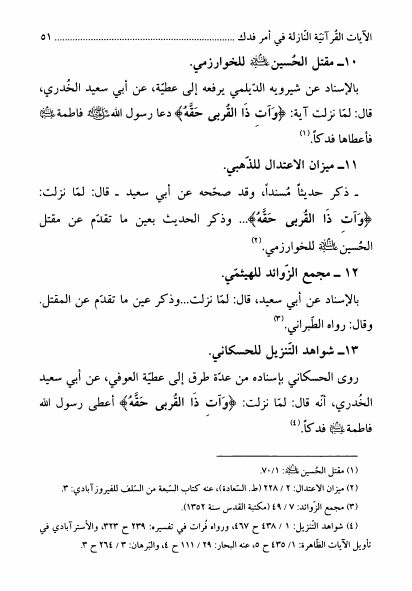 الآيات القُرآنيّة النّازلة في أمر فدك ........................................................ ٥١
١٠ـ مقتل الحُسين ﷺ للخوارزمي.
بالإسناد عن شيرويه الدّيلمي يرفعه إلى عطيّة، عن أبي سعيد الخُدري،
قال: لمّا نزلت آية: ﴿وَآتِ ذَا القُربى حَقَّهُ﴾ دعا رسول الله ﷺ فاطمة
فأعطاها فدكاً.(١)
١١ـ ميزان الاعتدال للذّهبي.
ـ ذكر حديثاً مُسنداً، وقد صحّحه عن أبي سعيد ـ قال: لمّا نزلت:
﴿وَآتِ ذَا القُربى حَقَّهُ﴾... وذكر الحديث بعين ما تقدّم عن مقتل
الحُسين للخوارزمي.(٢)
١٢ ـ مجمع الزّوائد للهيثمي.
بالإسناد عن أبي سعيد، قال: لمّا نزلت...وذكر عين ما تقدّم عن المقتل.
وقال: رواه الطّبراني.(٣)
١٣ـ شواهد التّنزيل للحسكاني.
روى الحسكاني بإسناده من عدّة طرق إلى عطيّة العوفي، عن أبي سعيد
الخُدري، أنّه قال: لمّا نزلت: ﴿وَآتِ ذَا القُربى حَقَّهُ﴾ أعطى رسول الله
فاطمة فدكاً.(٤)
(١) مقتل الحُسين : ٧٠/١.
(٢) ميزان الاعتدال: ٢ / ٢٢٨ (ط. السّعادة)، عنه كتاب السّبعة من السّلف للفيروزآبادي: ٣.
(٣) مجمع الزّوائد: ٧ / ٤٩ (مكتبة القدس سنة ١٣٥٢).
(٤) شواهد التّنزيل: ١ / ٤٣٨ ح ٤٦٧، ورواه فُرات في تفسيره: ٢٣٩ ح ٣٢٣، والأسترآبادي في
تأويل الآيات الظّاهرة: ١/ ٤٣٥ ح ٥، عنه البحار: ٢٩ / ١١١ ح ٤، والبُرهان: ٣ / ٢٦٤ ح ٣.